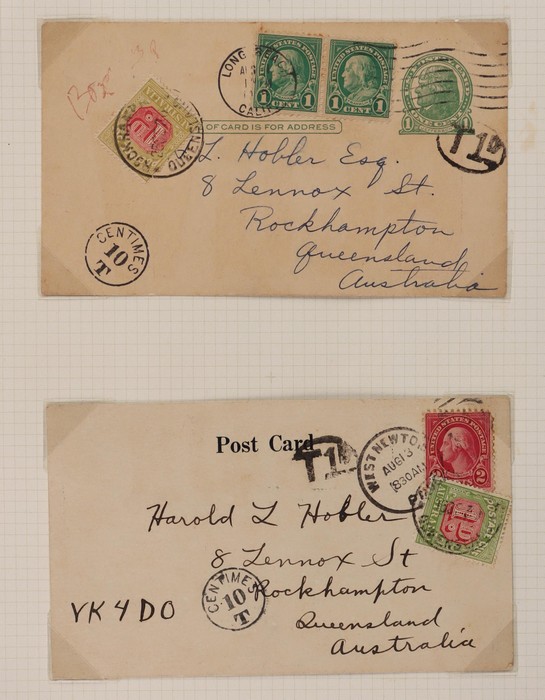 Box
LONG BEACH
CALIF.
UNITED STATES POSTAGE
1 CENT 1
UNITED STATES POSTAGE
1 CENT 1
OF CARD IS FOR ADDRESS
T 1d
ROCKHAMPTON
QUEENSLAND
L. Hobler Esq.
8 Lennox St.
Rockhampton
Queensland
Australia
CENTIMES
10
T
Post Card
T 1d
WEST NEWTON
AUG 13
830AM
UNITED STATES POSTAGE
2
Harold L Hobler
8 Lennox St
CENTIMES
10
T
Rockhampton
VK4DO
Queensland
Australia